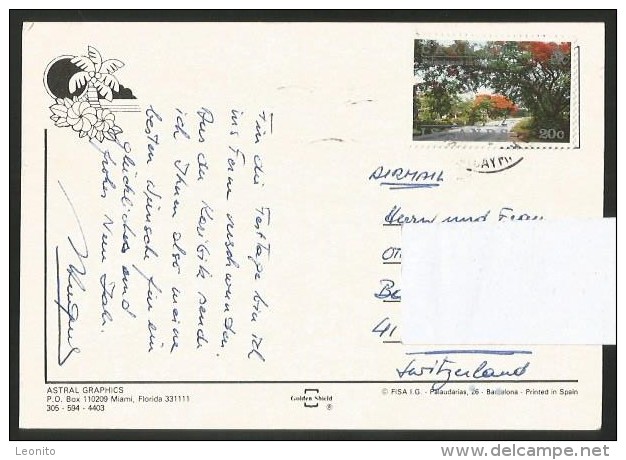 CAYMAN
ISLANDS
20c
Für die Festtage bin ich
ins Ferne verschwunden.
Aus der Karibik sende
ich Ihnen also meine
besten Wünsche für ein
glückliches und
frohes Neues Jahr.
AIRMAIL
Herrn und Frau
41
Switzerland
ASTRAL GRAPHICS
P.O. Box 110209 Miami, Florida 331111
305 - 594 - 4403
Golden Shield
®
© FISA I.G. - Palaudarias, 26 - Barcelona - Printed in Spain
Leonito
www.delcampe.net